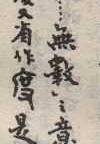 ……「無數」之意
又有作度是